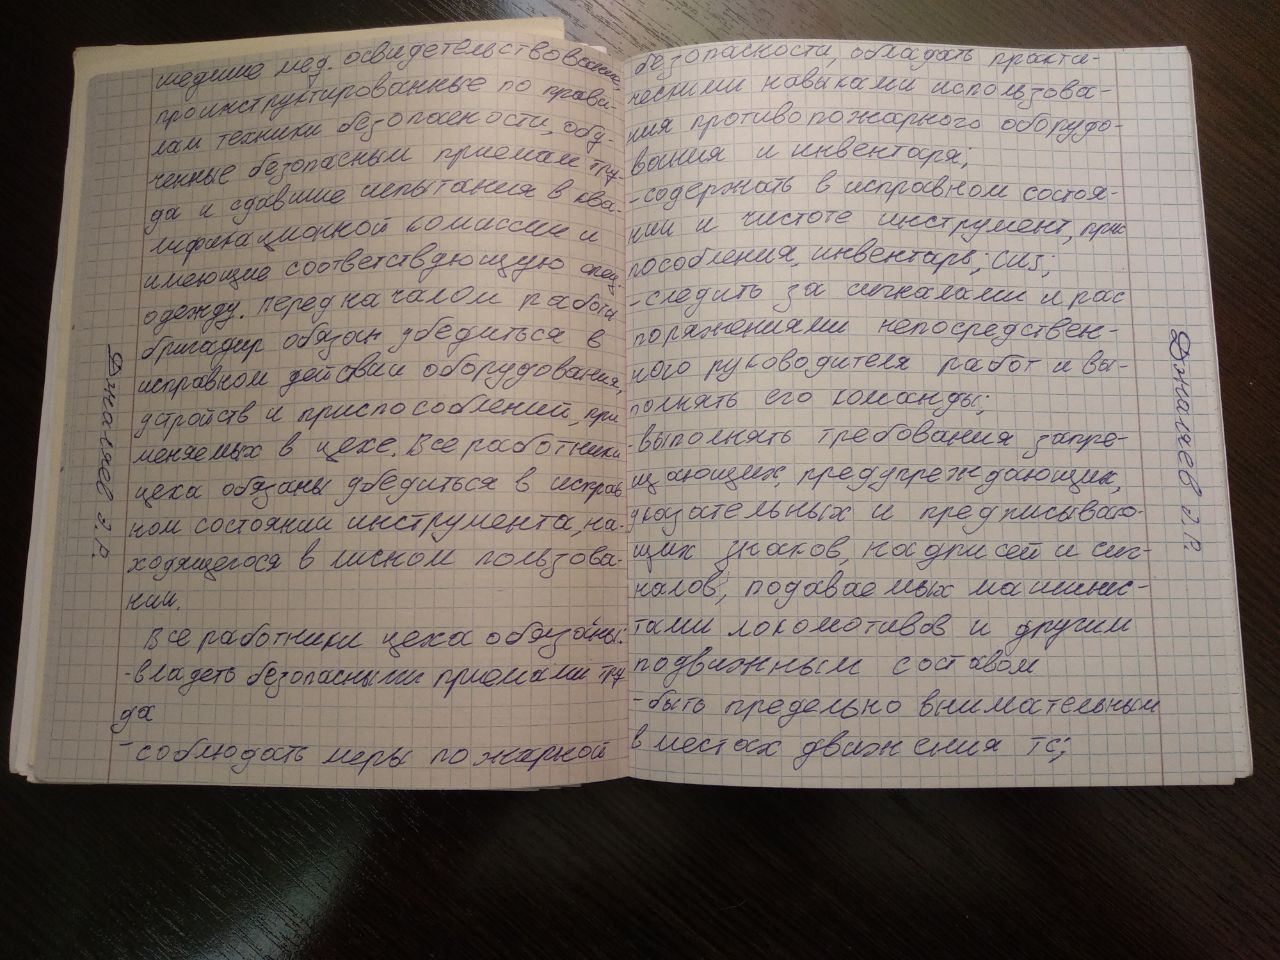 шедшие мед. освидетельствование,
проинструктированные по прави-
лам техники безопасности, обу-
ченные безопасным приемам тру-
да и сдавшие испытания в ква-
лификационной комиссии и
имеющие соответствующую спец.
одежду. Перед началом работы
бригадир обязан убедиться в
исправном действии оборудования,
устройств и приспособлений, при
меняемых в цехе. Все работники
цеха обязаны убедиться в исправ
ном состоянии инструмента, на-
ходящегося в лисном пользова-
нии.
Все работники цеха обязаны:
-владеть безопасными приемами тру
да
-соблюдать меры пожарной
Джаляев Э.Р.
безопасности, обладать практи-
ческими навыками использова-
ния противопожарного оборудо-
вания и инвентаря;
-содержать в исправном состоя-
нии и чистоте инструмент, при
пособления, инвентарь; СИЗ;
-следить за сигналами и рас
поряжениями непосредствен-
ного руководителя работ и вы-
полнять его команды;
-выполнять требования запре-
щающих, предупреждающих,
указательных и предписываю-
щих знаков, надписей и сиг-
налов, подаваемых машинис-
тами локомотивов и другим
подвижным составом
-быть предельно внимательным
в местах движения ТС;
Джаляев Э.Р.